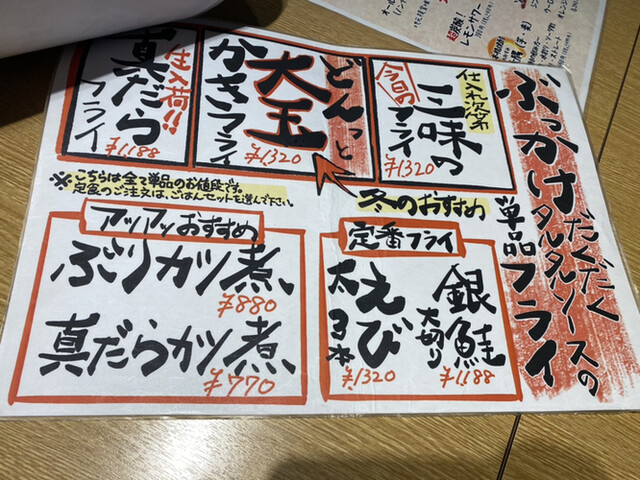 ぶっかけだくだく
タルタルソースの
単品フライ
仕入れ次第
今日の
三味の
フライ
¥1320
どんっと
大玉
かきフライ
¥1320
仕入荷!!
真だら
フライ
¥1188
※こちらは全て単品のお値段です。
定食のご注文は、ごはんセットを選んで下さい。
冬のおすすめ
定番フライ
銀鮭
大切り
¥1188
えび
太3本
¥1320
アツアツおすすめ
ぶりカツ煮
¥880
真だらカツ煮
¥770
レモンサワー